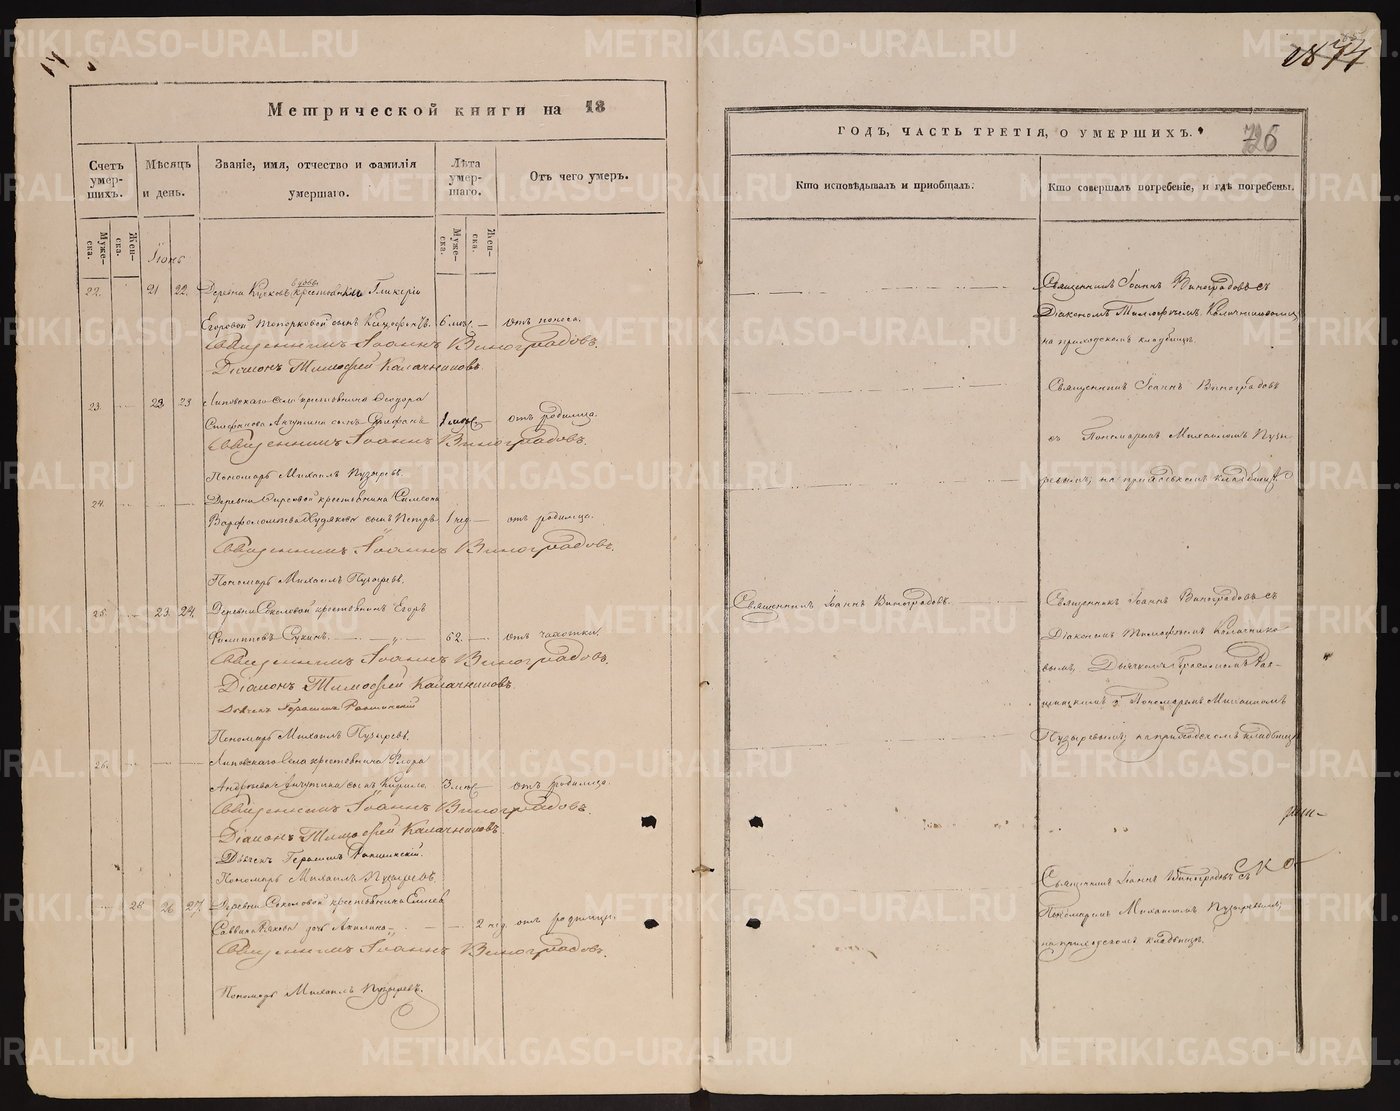 1874
Метрической книги на 18
ГОДЪ, ЧАСТЬ ТРЕТІЯ, О УМЕРШИХЪ.
726
Счетъ умерших. Мѣсяцъ и день. Званіе, имя, отчество и фамилія умершаго. Лѣта умершаго. Отъ чего умеръ.
Кто исповѣдывалъ и пріобщалъ. Кто совершалъ погребеніе, и гдѣ погребены.
Мужеска. Женска. Мужеска. Женска.
Іюнь
22. 21 22. Деревни вдовы Гликеріи
Егоровой Топорковой сынъ 6 мѣс. отъ поноса.
Священникъ Іоаннъ Виноградовъ.
Діаконъ Тимофей Калачниковъ
23. 22 23 Липовскаго села крестьянина Ѳеодора
Стефанова Анчутина сынъ Стефанъ 1 мѣс. отъ родимца.
Священникъ Іоаннъ Виноградовъ.
Пономарь Михаилъ Пузыревъ.
24. Деревни крестьянина Симеона
Варфоломѣева Худякова сынъ Петръ 1 нед. отъ родимца.
Священникъ Іоаннъ Виноградовъ.
Пономарь Михаилъ Пузыревъ.
25. 23. 24. Деревни Соколовой крестьянинъ Егоръ
Филипповъ 62. отъ чахотки.
Священникъ Іоаннъ Виноградовъ.
Діаконъ Тимофей Калачниковъ.
Дьячекъ Герасимъ
Пономарь Михаилъ Пузыревъ.
26. Липовскаго села крестьянина Флора
Андреева Анчутина сынъ 3 мѣс. отъ родимца.
Священникъ Іоаннъ Виноградовъ.
Діаконъ Тимофей Калачниковъ.
Дьячекъ Герасимъ
Пономарь Михаилъ Пузыревъ.
28. 26 27. Деревни Соколовой крестьянина Елисея
Саввина дочь Акилина 2 нед. отъ родимца.
Священникъ Іоаннъ Виноградовъ.
Пономарь Михаилъ Пузыревъ.
Священникъ Іоаннъ Виноградовъ съ
Діакономъ Тимофеемъ Калачниковымъ
на приходскомъ кладбищѣ.
Священникъ Іоаннъ Виноградовъ
съ Пономаремъ Михаиломъ Пузы-
ревымъ, на приходскомъ кладбищѣ
Священникъ Іоаннъ Виноградовъ.
Священникъ Іоаннъ Виноградовъ съ
Діакономъ Тимофеемъ Калачнико-
вымъ, Дьячкомъ Герасимомъ
и Пономаремъ Михаиломъ
Пузыревымъ, на приходскомъ кладбищѣ
Священникъ Іоаннъ Виноградовъ съ
Пономаремъ Михаиломъ Пузыревымъ,
на приходскомъ кладбищѣ.
METRIKI.GASO-URAL.RU